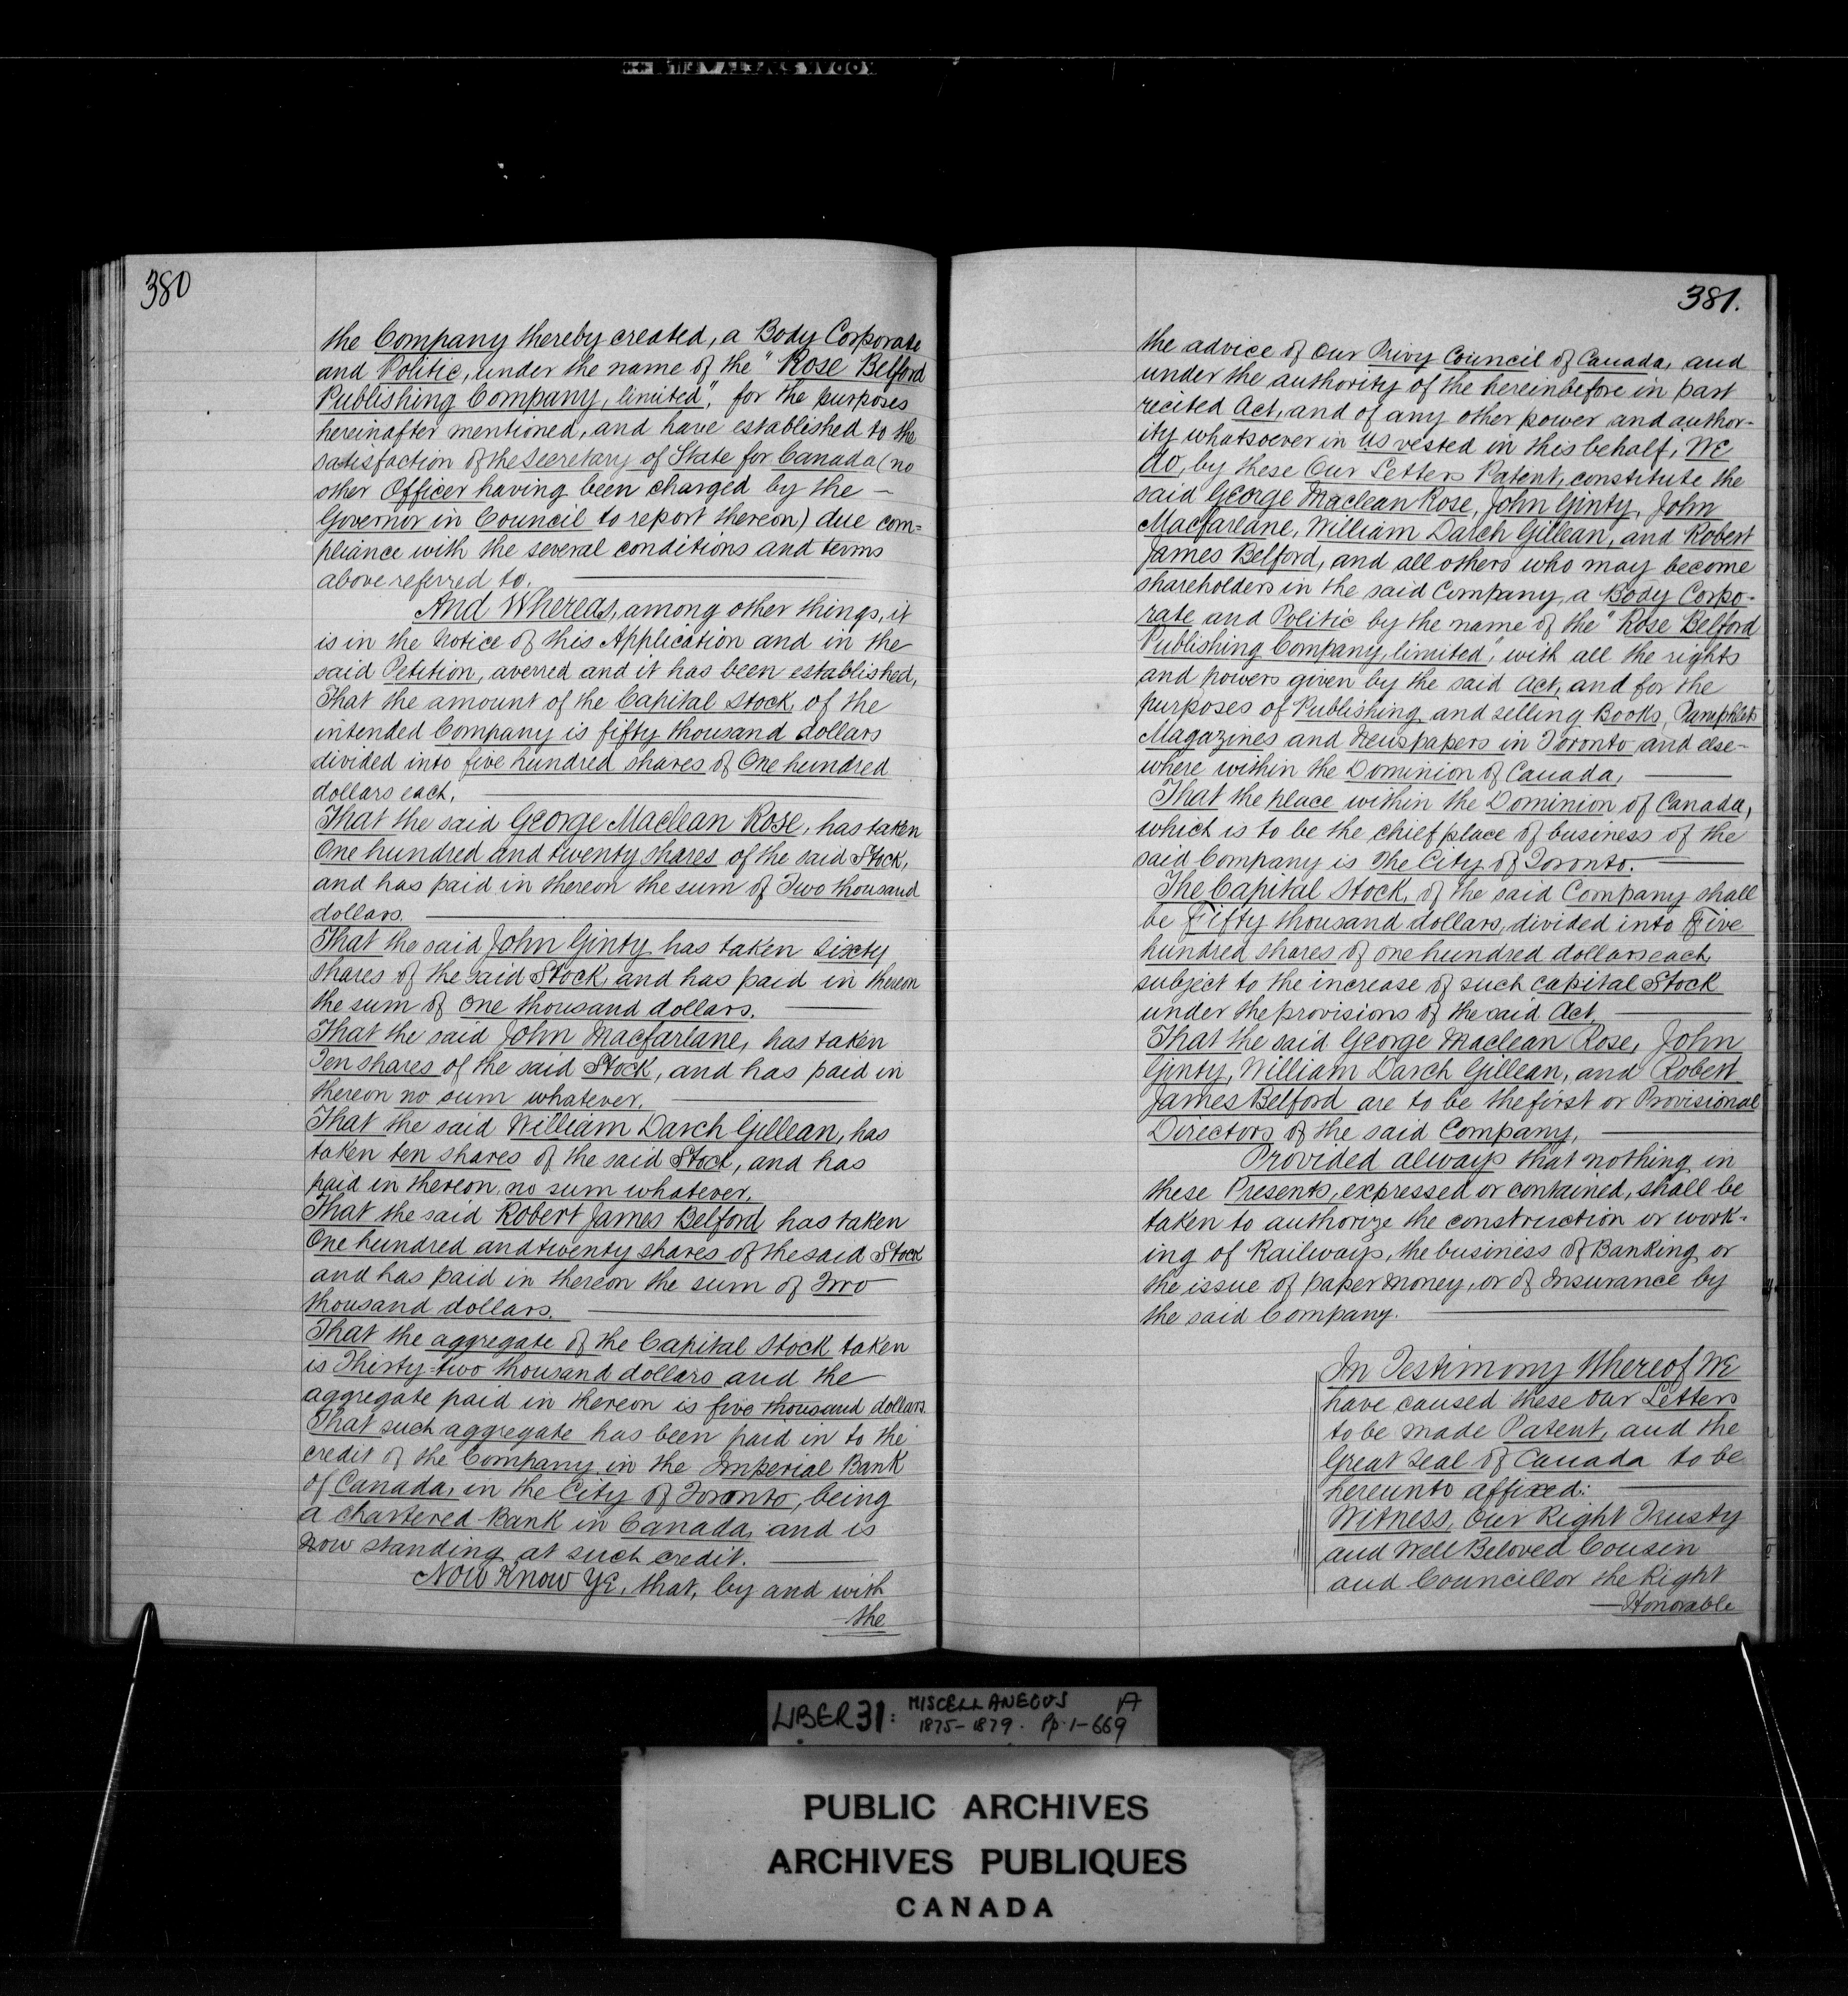 380
the Company thereby created, a Body Corporate
and Politic, under the name of the "Rose Belford
Publishing Company, limited", for the purposes
hereinafter mentioned, and have established to the
satisfaction of the Secretary of State for Canada (no
other Officer having been charged by the —
Governor in Council to report thereon) due com=
pliance with the several conditions and terms
above referred to.
And Whereas, among other things, it
is in the Notice of this Application and in the
said Petition, averred and it has been established,
That the amount of the Capital Stock of the
intended Company is fifty thousand dollars
divided into five hundred shares of One hundred
dollars each.
That the said George Maclean Rose, has taken
One hundred and twenty shares of the said Stock,
and has paid in thereon the sum of Two thousand
dollars.
That the said John Ginty has taken Sixty
shares of the said Stock, and has paid in thereon
the sum of One thousand dollars.
That the said John Macfarlane, has taken
Ten shares of the said Stock, and has paid in
thereon no sum whatever.
That the said William Darch Gillean, has
taken ten shares of the said Stock, and has
paid in thereon no sum whatever.
That the said Robert James Belford has taken
One hundred and twenty shares of the said Stock
and has paid in thereon the sum of Two
thousand dollars.
That the aggregate of the Capital Stock taken
is Thirty-two thousand dollars and the
aggregate paid in thereon is five thousand dollars.
That such aggregate has been paid in to the
credit of the Company in the Imperial Bank
of Canada, in the City of Toronto, being
a Chartered Bank in Canada, and is
now standing at such credit.
Now Know Ye, that, by and with
the
381.
the advice of Our Privy Council of Canada, and
under the authority of the hereinbefore in part
recited Act, and of any other power and author-
ity whatsoever in us vested in this behalf, We
do, by these Our Letters Patent, constitute the
said George Maclean Rose, John Ginty, John
Macfarlane, William Darch Gillean, and Robert
James Belford, and all others who may become
shareholders in the said Company, a Body Corpo-
rate and Politic by the name of the "Rose Belford
Publishing Company, limited", with all the rights
and powers given by the said Act, and for the
purposes of Publishing and selling Books, Pamphlets
Magazines and Newspapers in Toronto and else-
where within the Dominion of Canada,
That the place within the Dominion of Canada,
which is to be the chief place of business of the
said Company is The City of Toronto.
The Capital Stock, of the said Company shall
be Fifty thousand dollars, divided into Five
hundred shares of one hundred dollars each,
subject to the increase of such Capital Stock
under the provisions of the said Act.
That the said George Maclean Rose, John
Ginty, William Darch Gillean, and Robert
James Belford are to be the first or Provisional
Directors of the said Company.
Provided always that nothing in
these Presents, expressed or contained, shall be
taken to authorize the construction or work-
ing of Railways, the business of Banking or
the issue of paper money, or of Insurance by
the said Company.
In Testimony Whereof We
have caused these Our Letters
to be made Patent, and the
Great Seal of Canada to be
hereunto affixed:
Witness, Our Right Trusty
and Well Beloved Cousin
and Councillor the Right
Honorable
LIBER 31: MISCELLANEOUS A
1875-1879. Pp. 1-669
PUBLIC ARCHIVES
ARCHIVES PUBLIQUES
CANADA